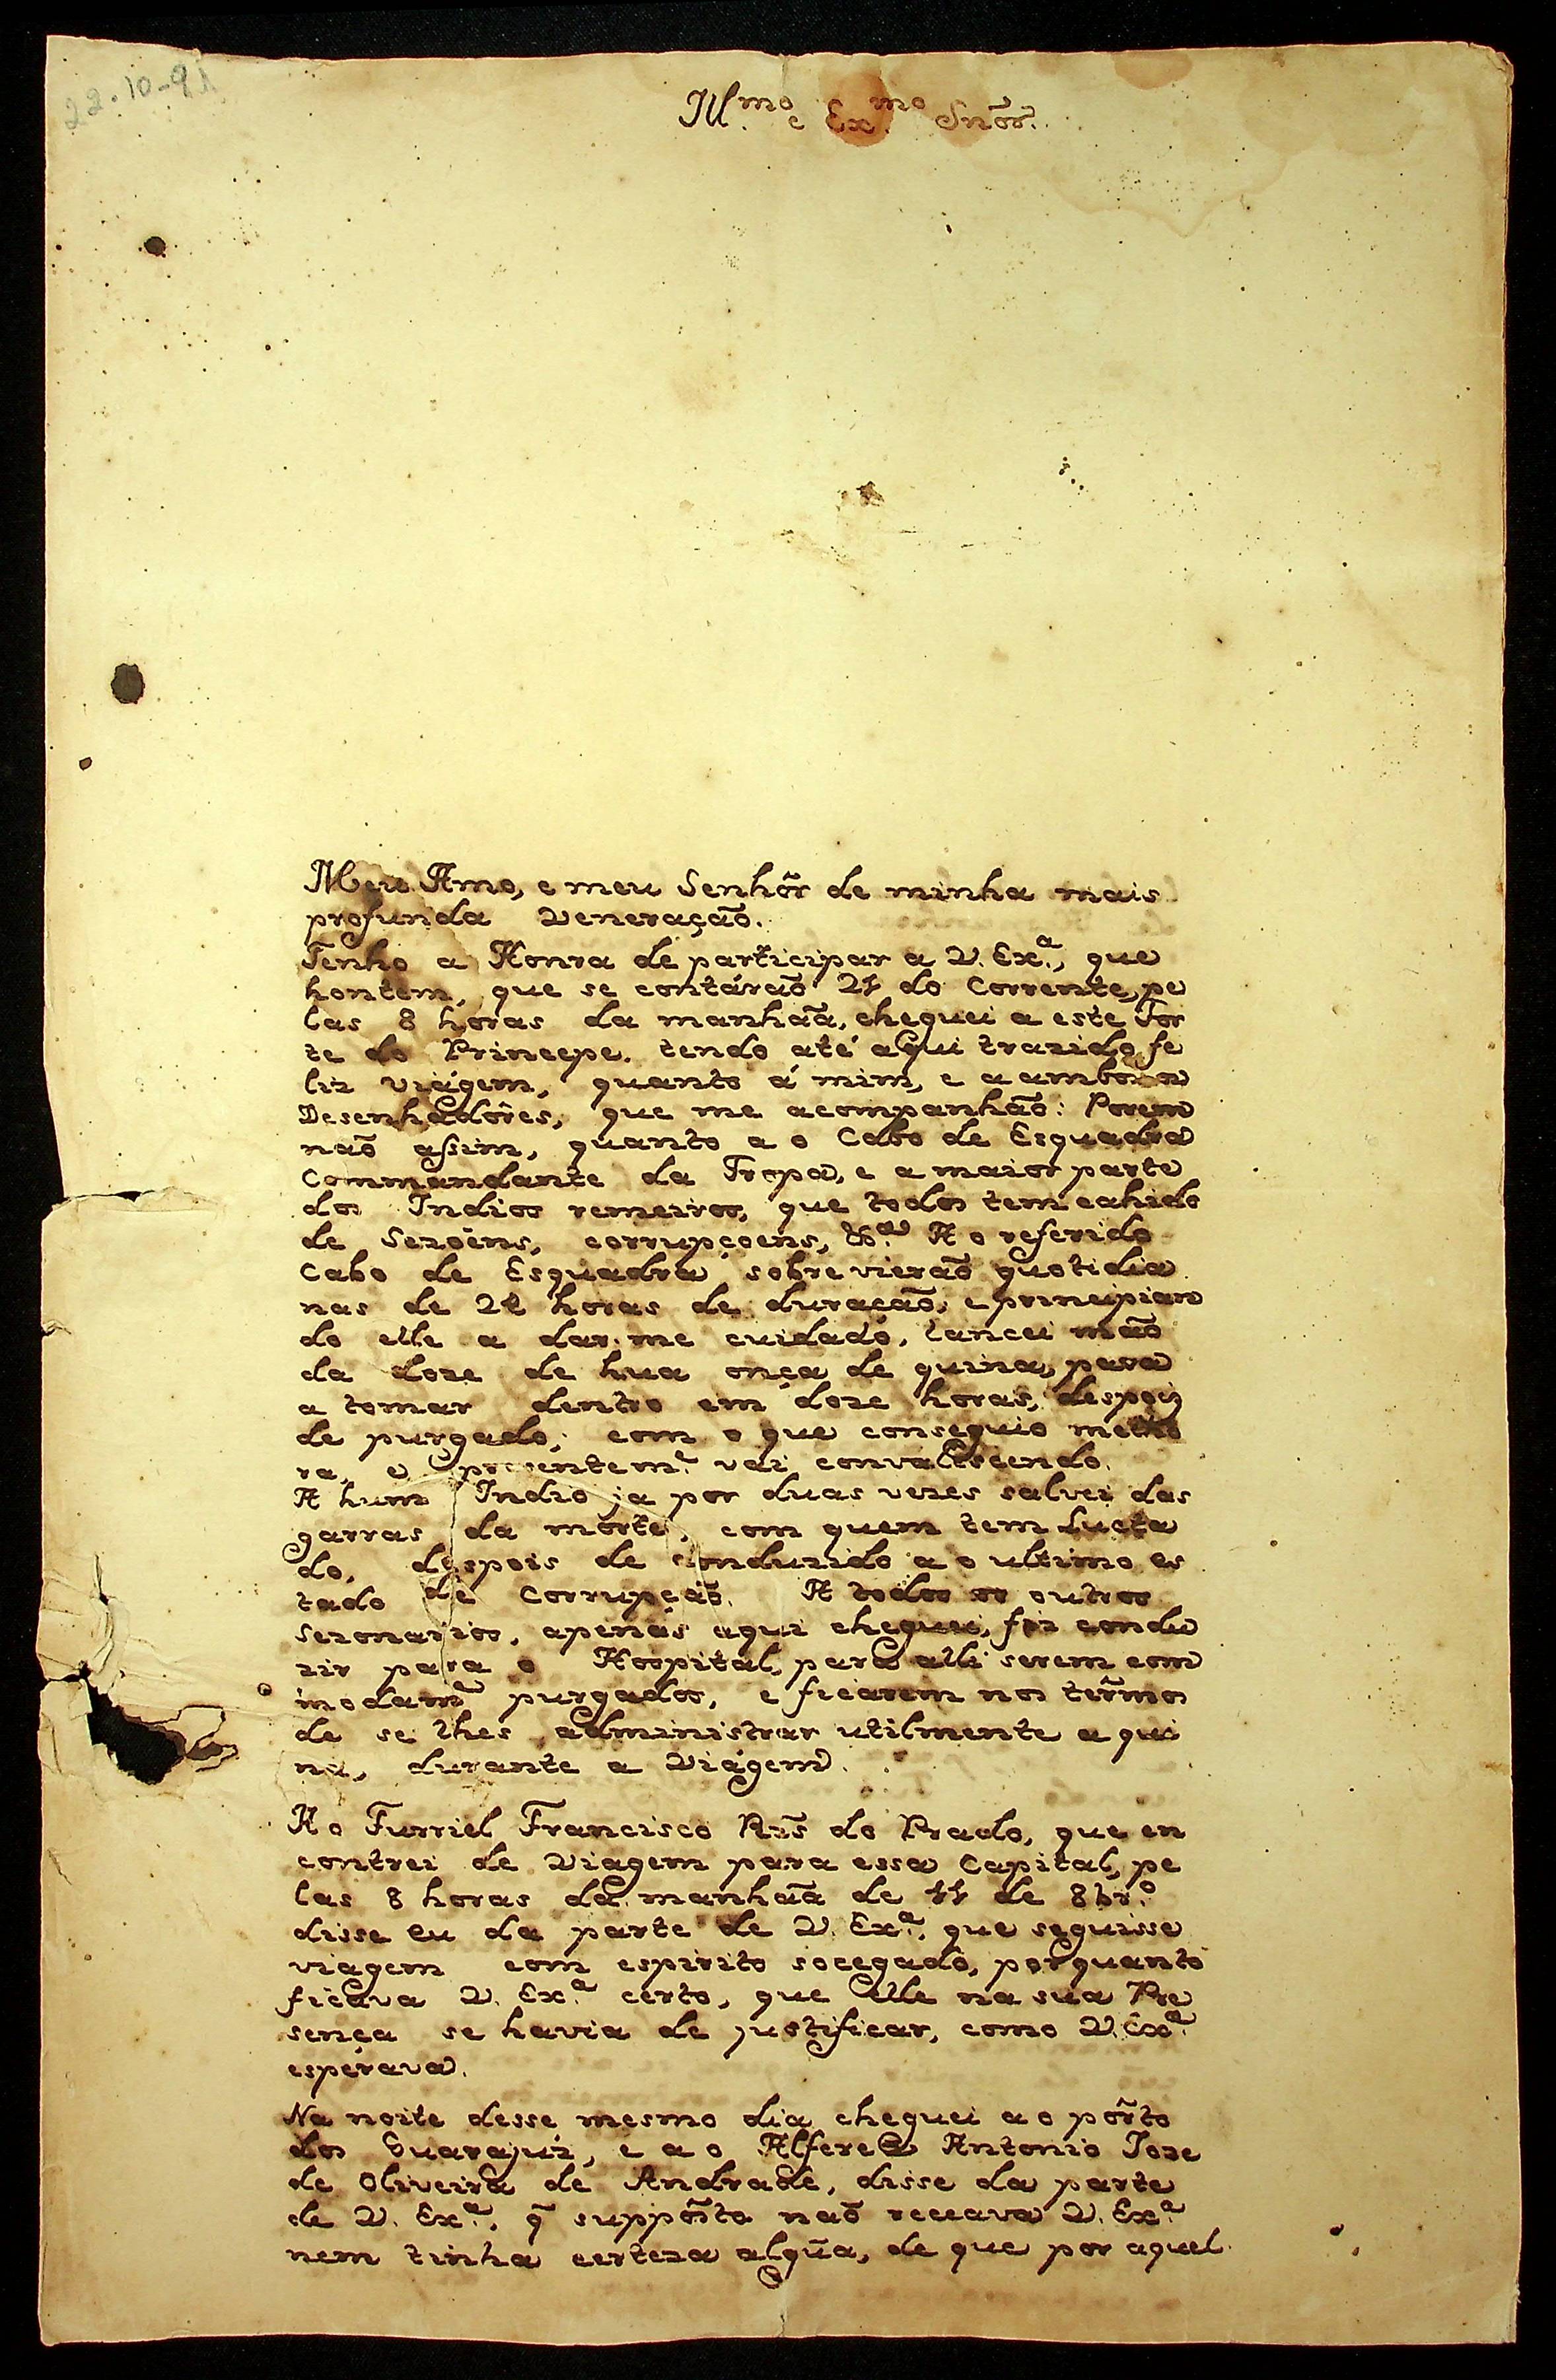 22-10-91
Ill.mo e Ex.mo Snõr.
Meu Amo, e meu Senhôr de minha mais
profunda Veneração.
Tenho a Honra de participar a V. Ex.a, que
hontem, que se contárão 21 do Corrente, pe
las 8 horas da manhãa, cheguei a este For
te do Princepe. tendo até aqui trazido fe
liz viágem, quanto á mim, e a ambos os
Desenhadôres, que me acompanhão: Porem
não assim, quanto a o Cabo de Esquadra
Commandante da Tropa, e a maior parte
dos Indios remeiros, que todos tem cahido
de Sezoens, corrupçoens, &.a A o referido
Cabo de Esquadra sobrevierão quotidia
nas de 22 horas de duração, e principian
do elle a dar-me cuidado, lancei mão
da doze de hua onça de quina, para
a tomar dentro em doze horas, despois
de purgado; com o que conseguio melho
ra, e presentem.e vai convalescendo.
A hum Indio ja por duas vezes salvei das
garras da morte, com quem tem Lucta
do, despois de conduzido a o ultimo es
tado de Corrupção. A todos os outros
Sezonaticos, apenas aqui cheguei, fiz condu
zir para o Hospital, para alli serem com
modam.e purgados, e ficarem nos termos
de se lhes administrar utilmente a qui
na, durante a Viágem.
A o Furriel Francisco Rỉs do Prado, que en
contrei de Viagem para essa Capital, pe
las 8 horas da manhãa de 11 de 8br.o
disse eu da parte de V. Ex.a, que seguisse
viagem com espirito socegado, porquanto
ficava V. Ex.a certo, que elle na sua Pre
sença se havia de justificar, como V. Ex.a
espérava.
Na noite desse mesmo dia cheguei a o pôrto
dos Guarajuz, e a o Alferes Antonio Joze
de Oliveira de Andrade, disse da parte
de V. Ex.a, q̃ suppôsto não receava V. Ex.a
nem tinha certeza algũa, de que por aquel